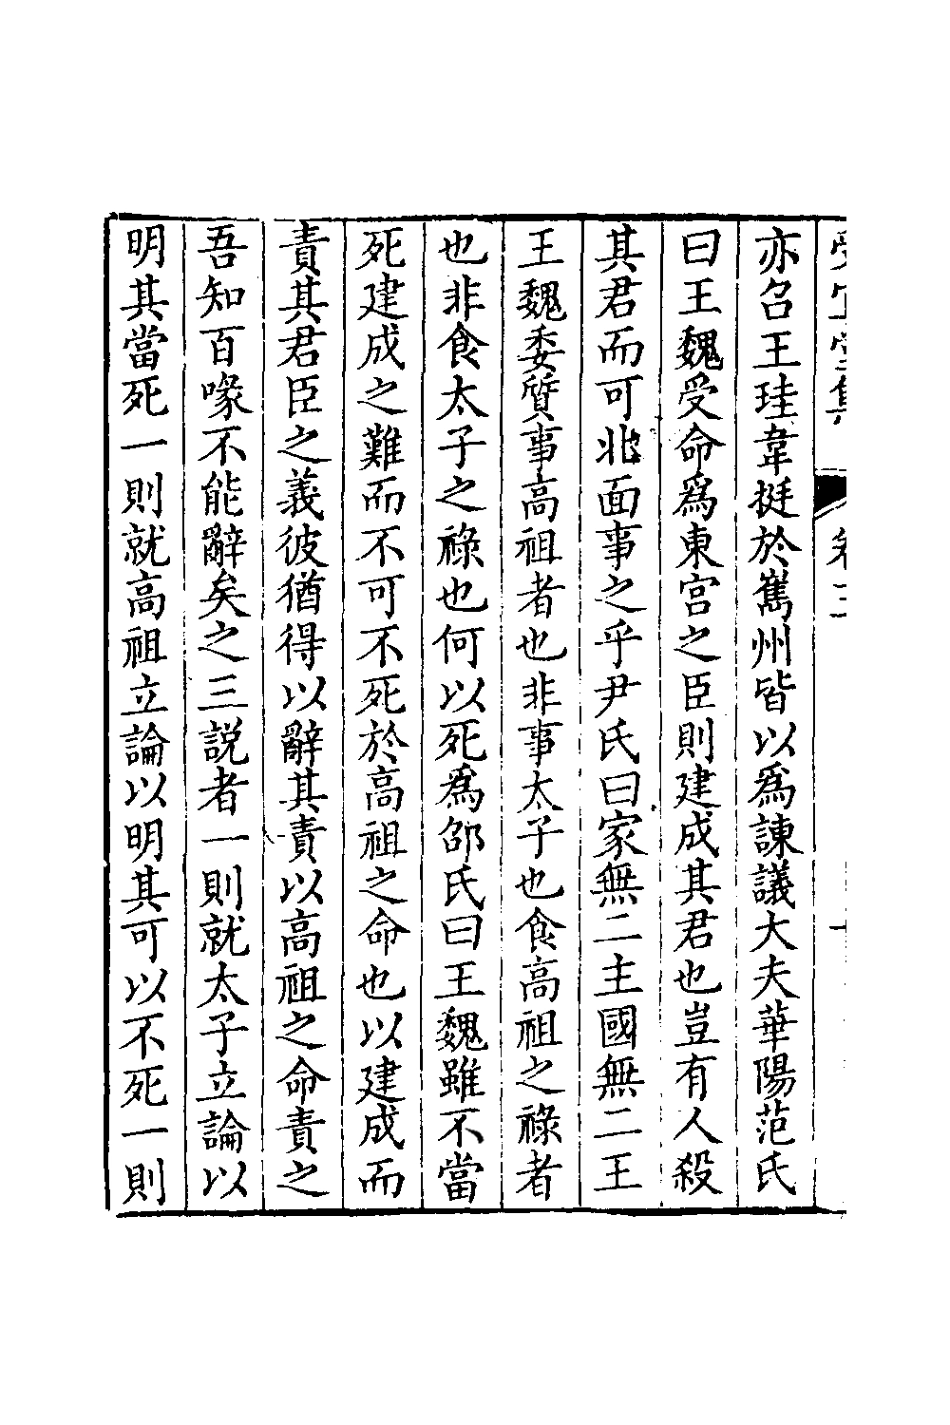 亦召王珪韋挺於嶲州皆以爲諫議大夫華陽范氏
曰王魏受命爲東宮之臣則建成其君也豈有人殺
其君而可北面事之乎尹氏曰家無二主國無二王
王魏委質事高祖者也非事太子也食高祖之祿者
也非食太子之祿也何以死爲邵氏曰王魏雖不當
死建成之難而不可不死於高祖之命也以建成而
責其君臣之義彼猶得以辭其責以高祖之命責之
吾知百喙不能辭矣之三説者一則就太子立論以
明其當死一則就高祖立論以明其可以不死一則